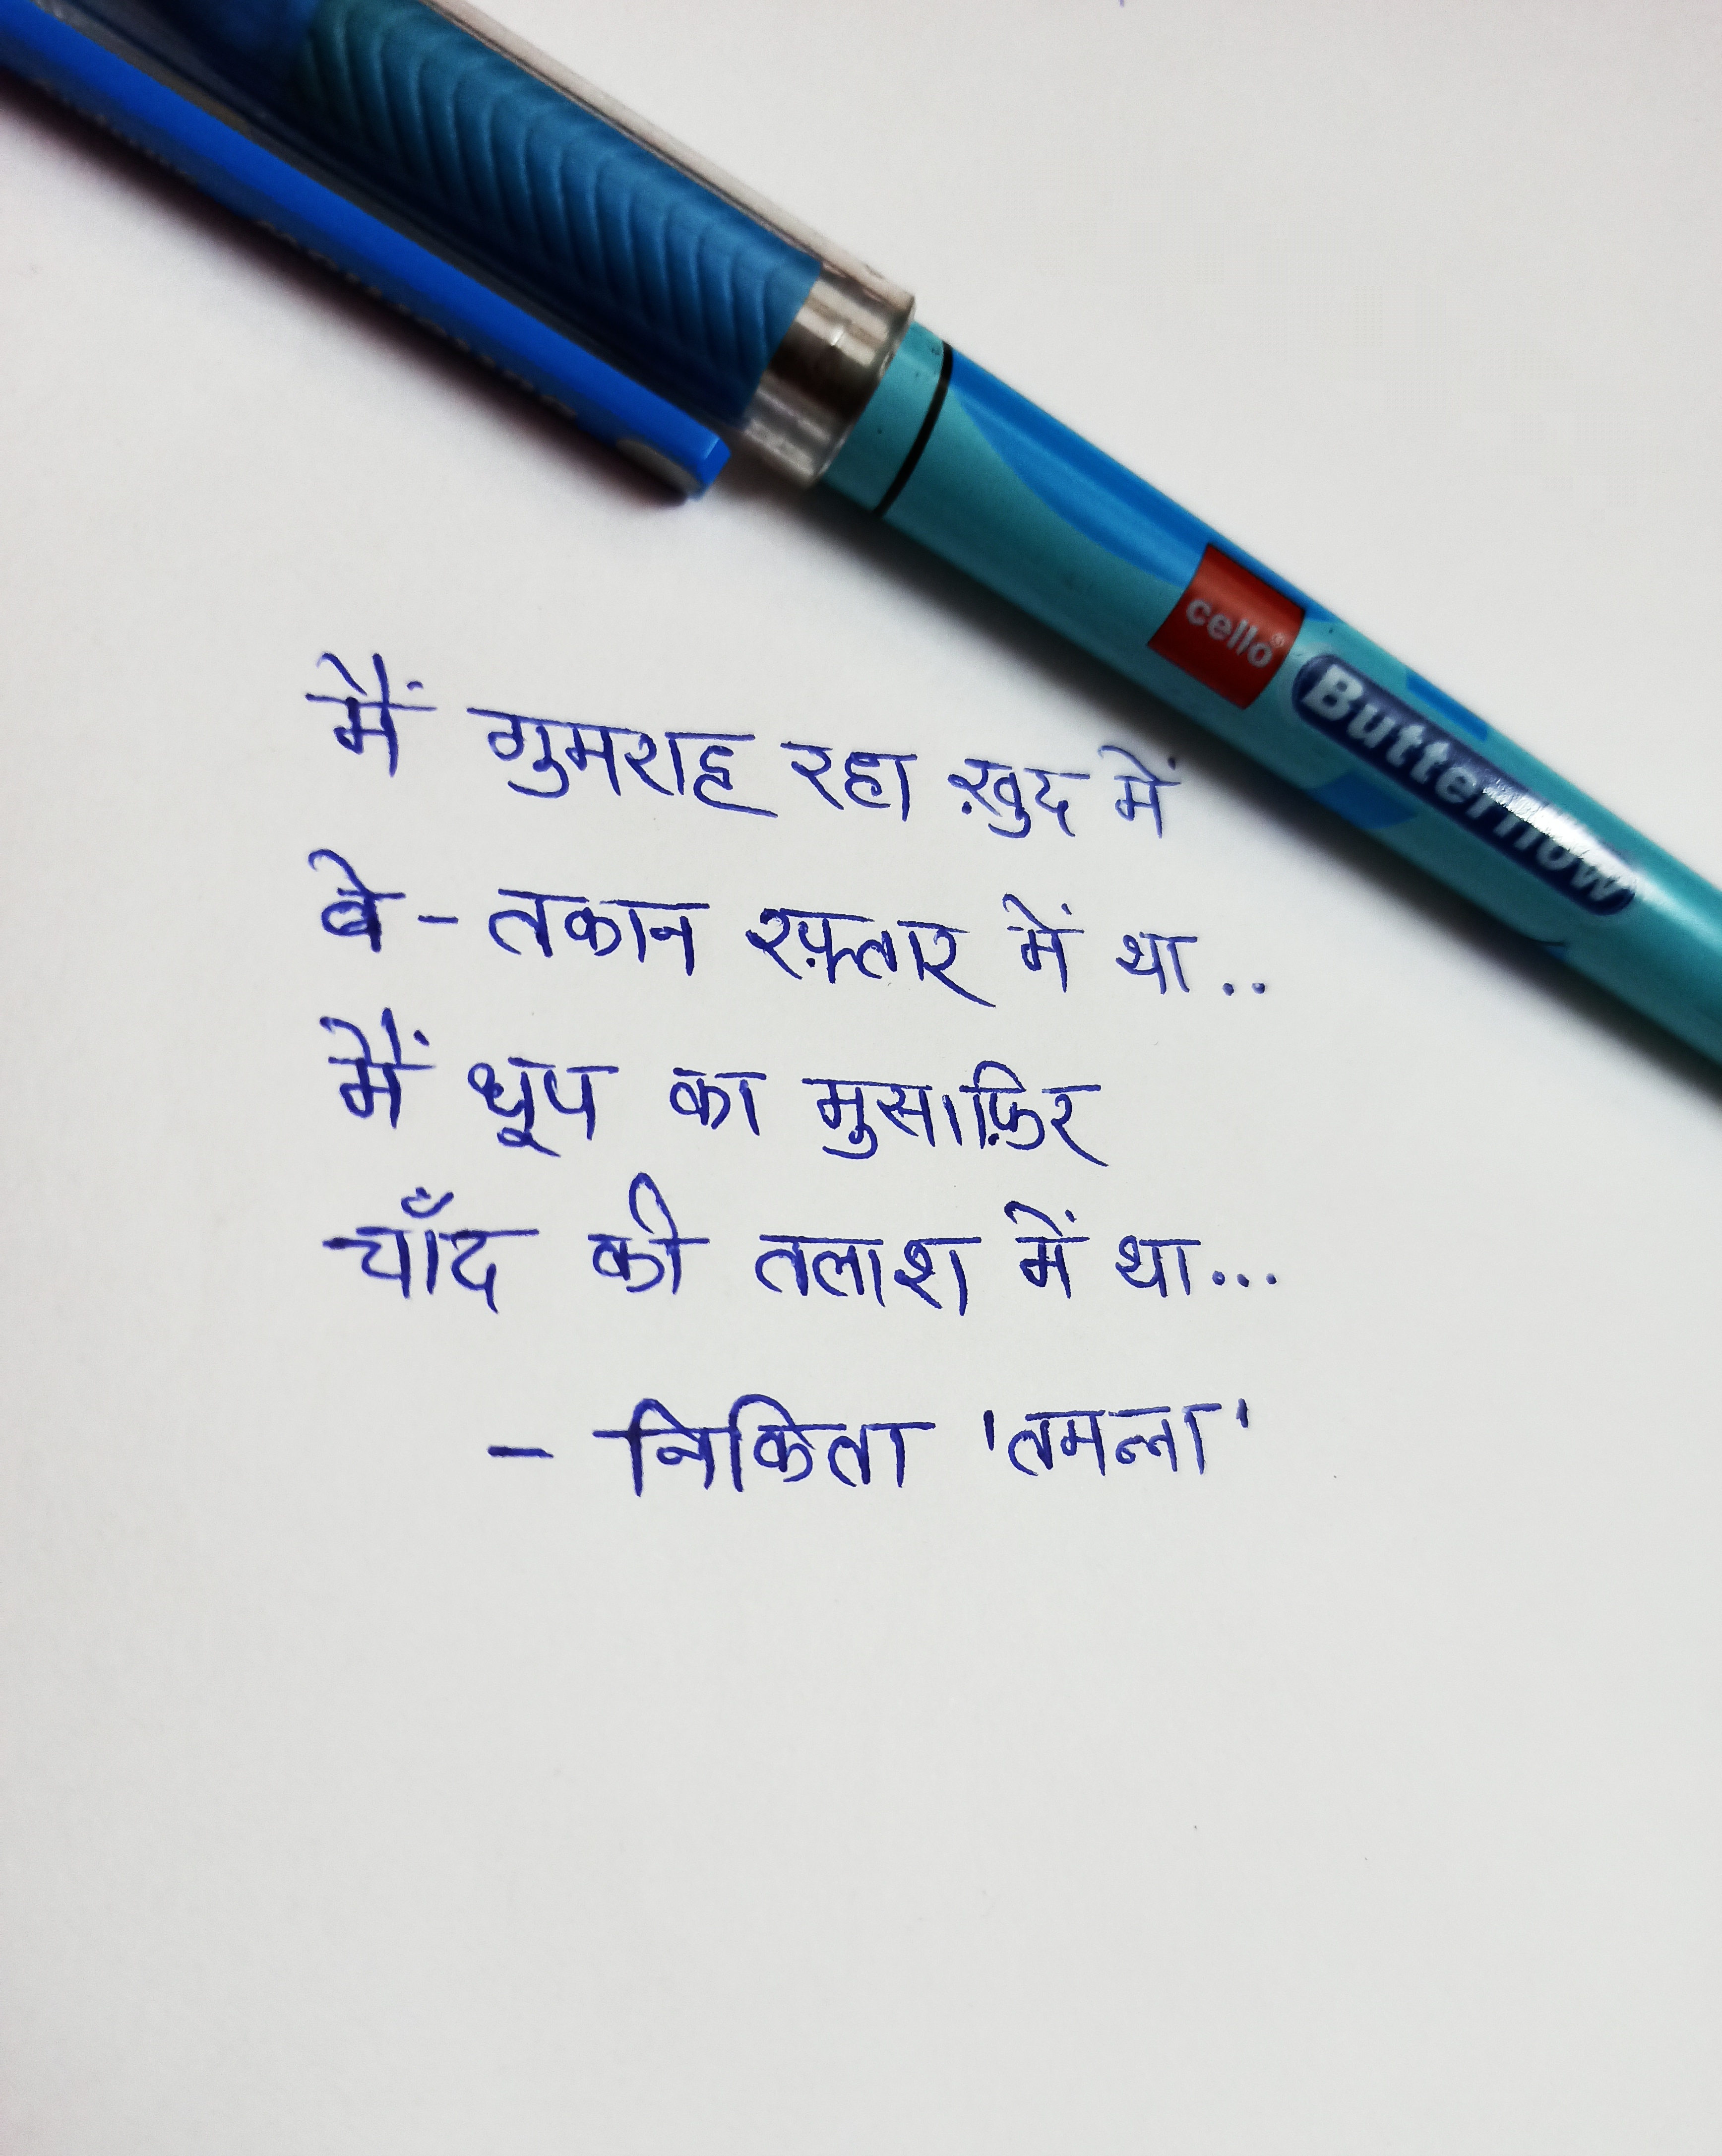 cello
Butterflow
मैं गुमराह रहा ख़ुद में
बे - तकान रफ़्तार में था..
मैं धूप का मुसाफ़िर
चाँद की तलाश में था...
- निकिता 'तमन्ना'